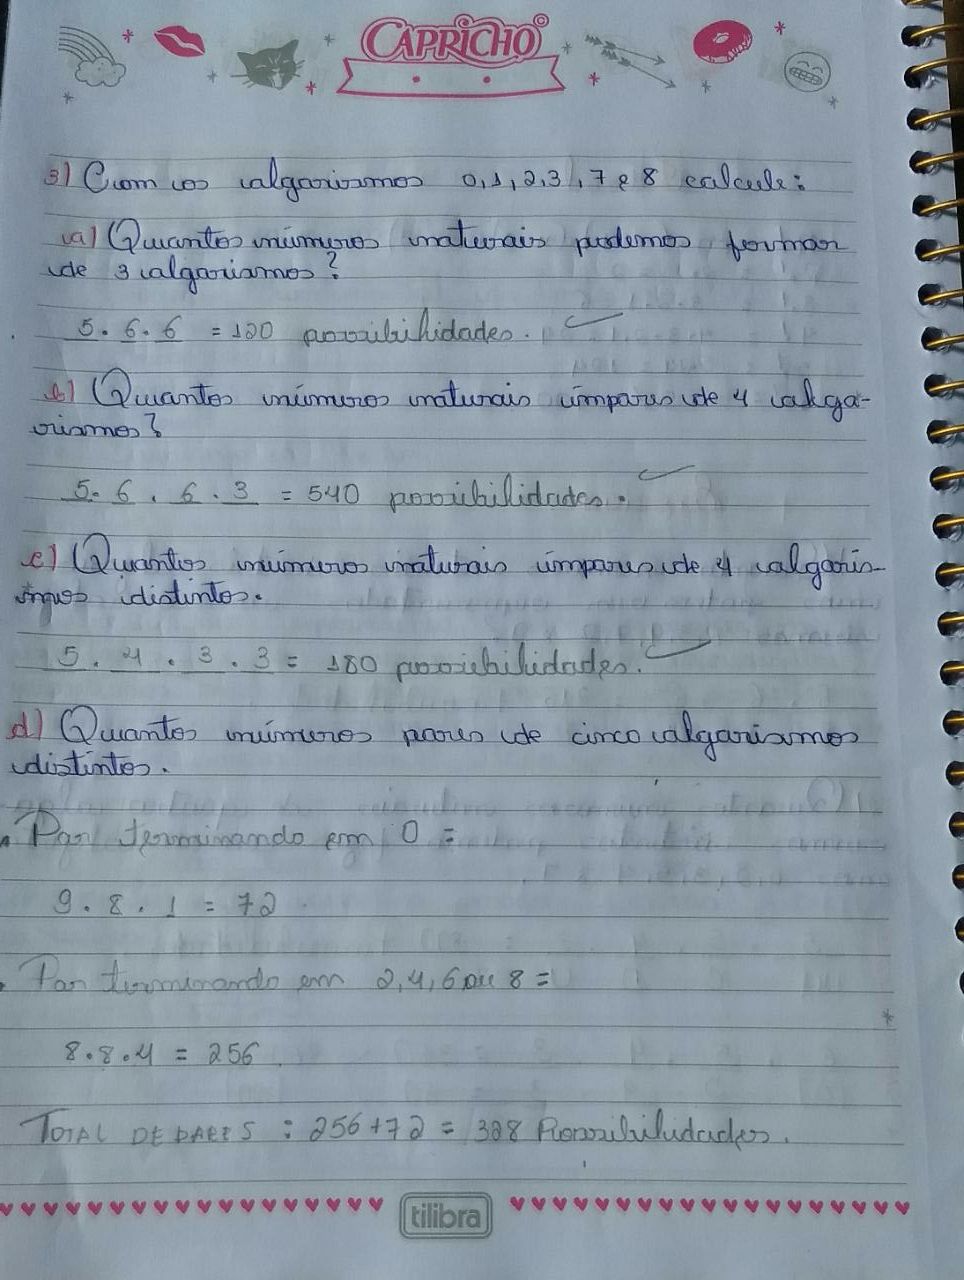 CAPRICHO©
3) Com os algarismos 0,1,2,3,7 e 8 calcule:
a) Quantos números naturais podemos formar
de 3 algarismos?
5.6.6 = 180 possibilidades.
b) Quantos números naturais ímpares de 4 alga-
rismos?
5.6.6.3 = 540 possibilidades.
c) Quantos números naturais ímpares de 4 algaris-
mos distintos.
5.4.3.3 = 180 possibilidades.
d) Quantos números pares de cinco algarismos
distintos.
Par terminando em 0 =
9.8.1 = 72
Par terminando em 2,4,6 ou 8 =
8.8.4 = 256
TOTAL DE PARES : 256+72 = 328 Possibilidades.
tilibra